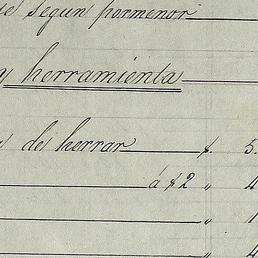 segun pormenor
y herramienta
de herrar $ 5
á $ 2 " 4
" 1
" 4